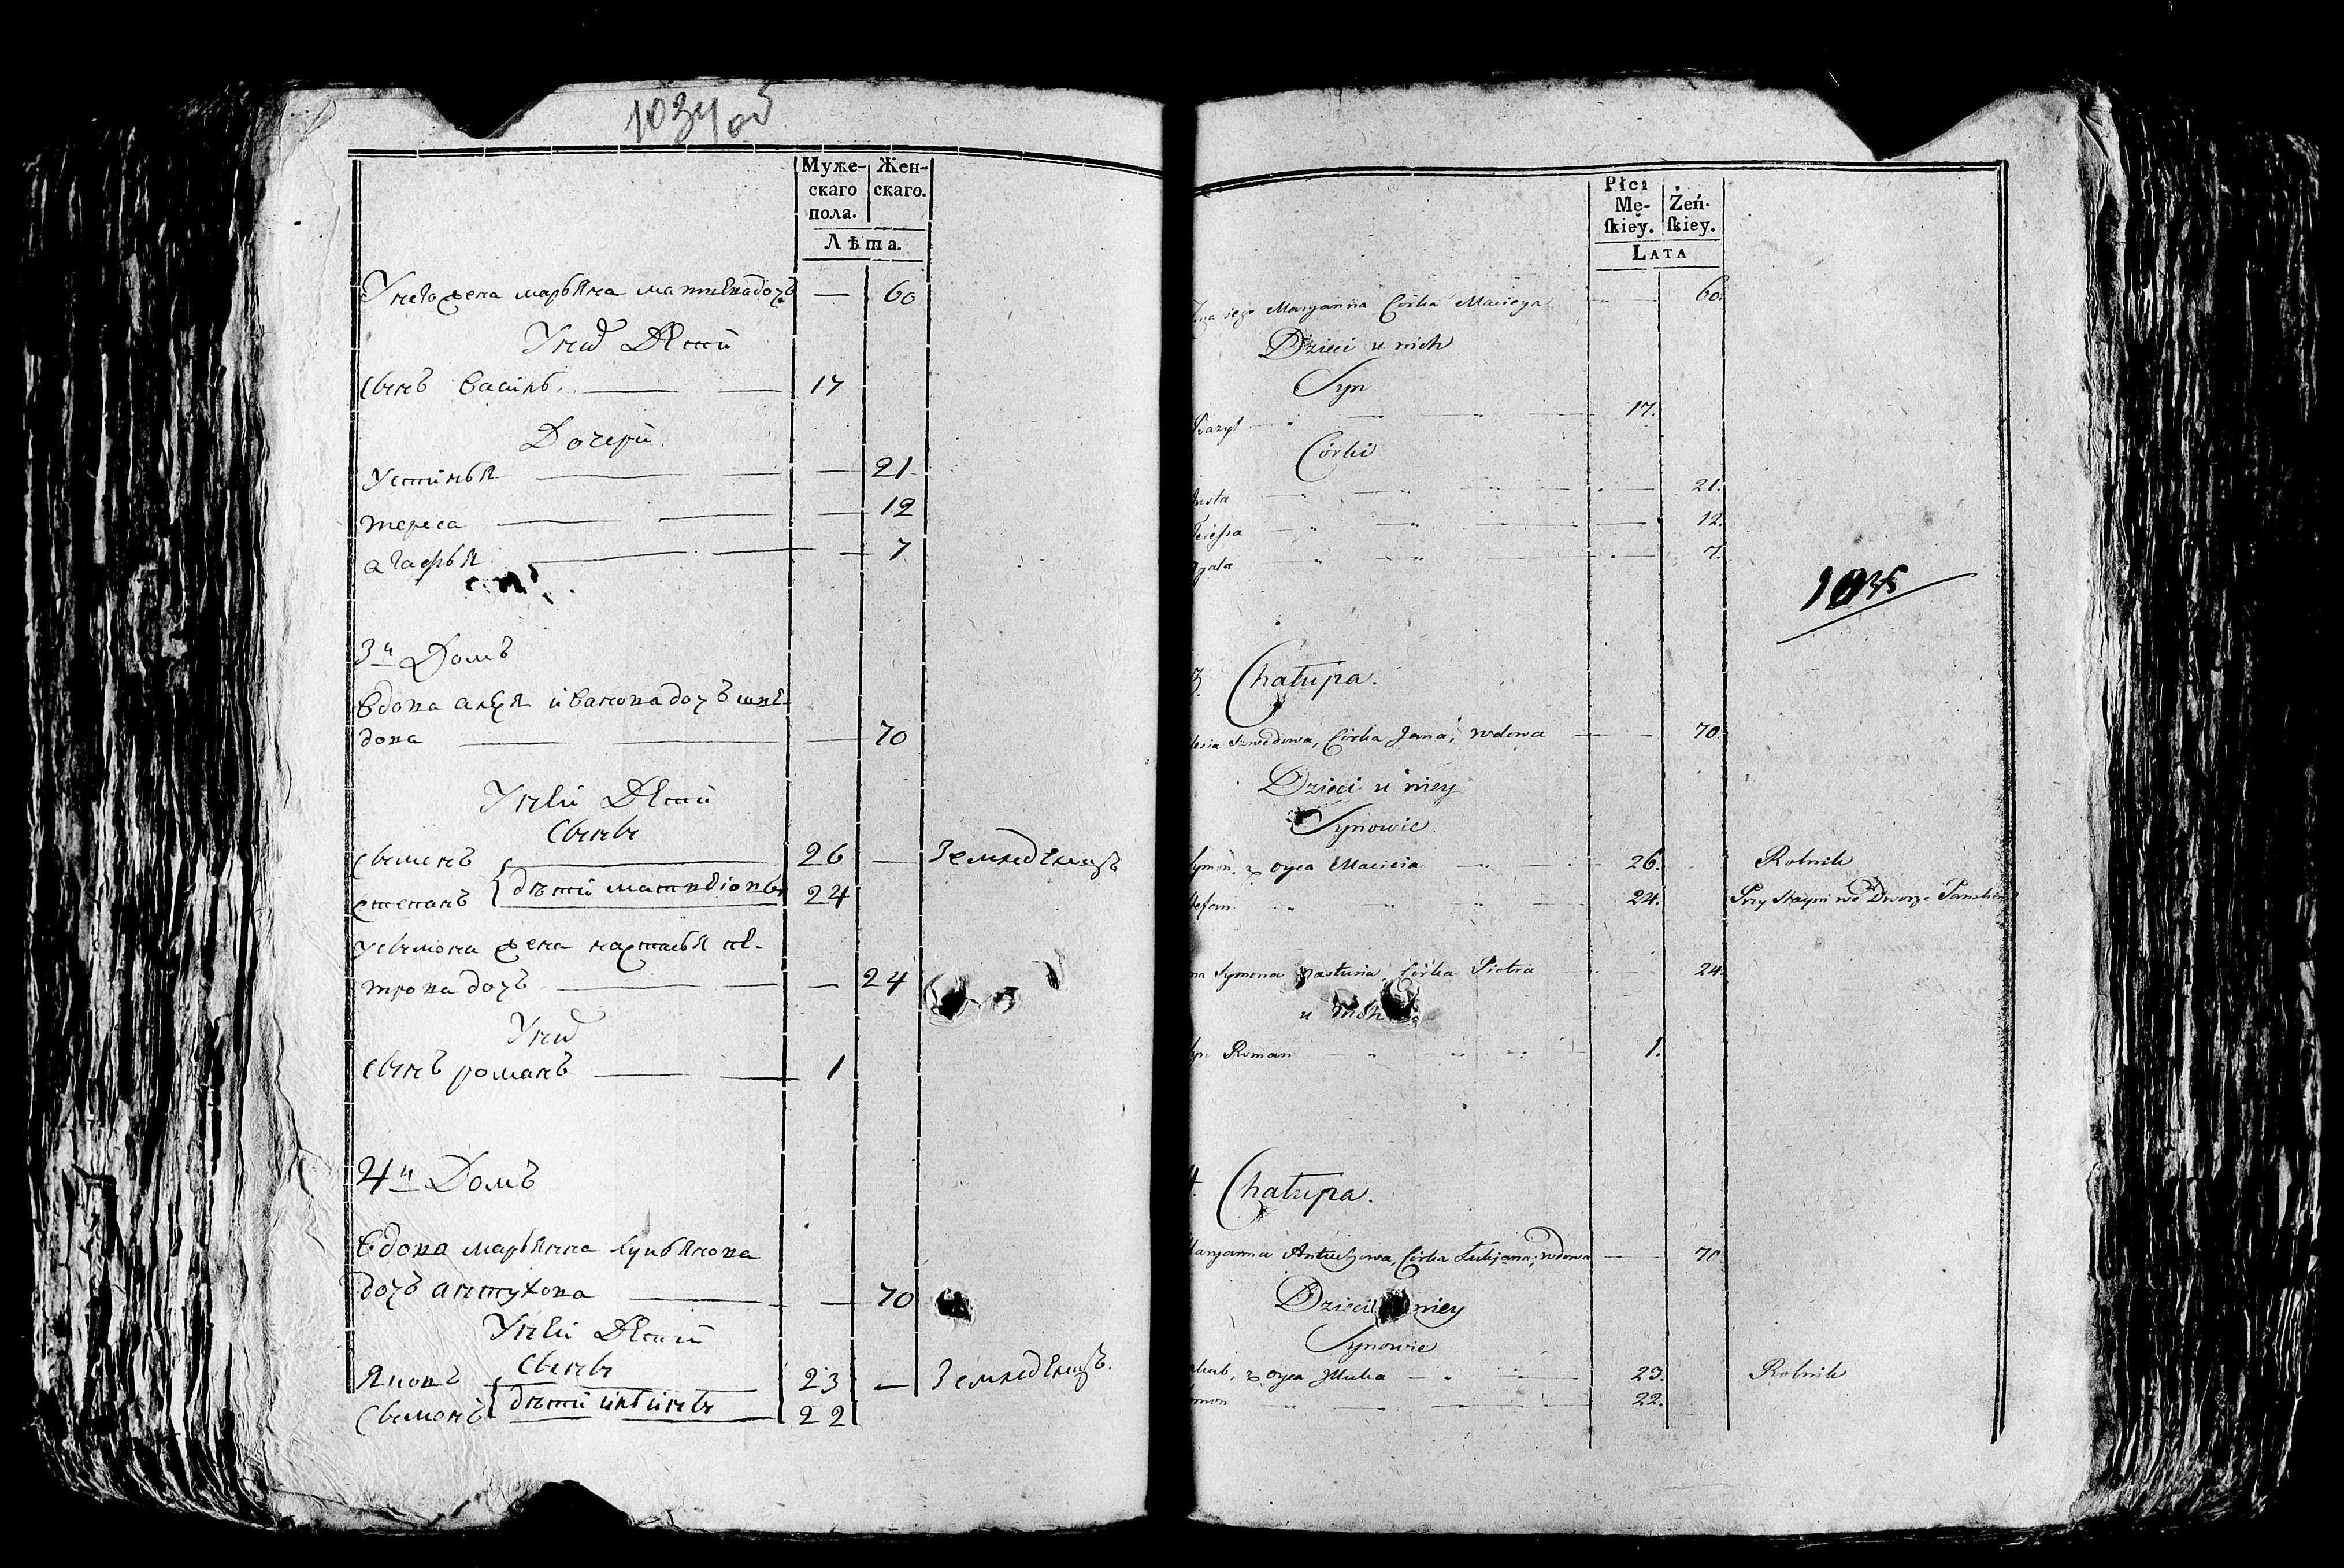 1034об
Муже-
скаго
пола.
Жен-
скаго.
Лѣта.
Унего жена марьяна матвѣева дочь — 60
Унихъ Дѣти
Сынъ Василь 17
Дочери
Устинья — 21
тереса — 12
агафья — 7
3й Домъ
Вдова алеся иванова дочь швѣ-
дова — 70
Унѣй Дѣти
Сыны
Сымонъ 26 — Земледѣлецъ
степанъ дѣти матвѣіовы 24
усымона жена настасья пѣ-
трова дочь — 24
Унихъ
Сынъ романъ 1
4й Домъ
Вдова марьянна лукьянова
дочь антухова — 70
Унѣй Дѣти
Сыны
Яковъ 23 — Земледѣлецъ.
Сымонъ дѣти ильины 22
Płci
Mę-
skiey.
Żeń-
skiey.
LATA
Żona iego Maryanna Córka Macieya 60.
Dzieci u nich
Syn
Bazyl 17.
Córki
Justa 21.
Teressa 12.
Agata 7.
1035
3. Chałupa.
lesia Szwedowa, Córka Jana, wdowa 70.
Dzieci u niey
Synowie
Symon, z oyca Macieia 26. Rolnik
Stefan 24. Przy Stayni we Dworze Pańskim
na Symona Nastazia, Córka Piotra 24.
u nich
Syn Roman 1.
4. Chałupa.
Maryanna Antuchowa, Córka Łukjana, wdowa 70
Dzieci u niey
Synowie
akub, z oyca Illuka 23. Rolnik
ymon 22.